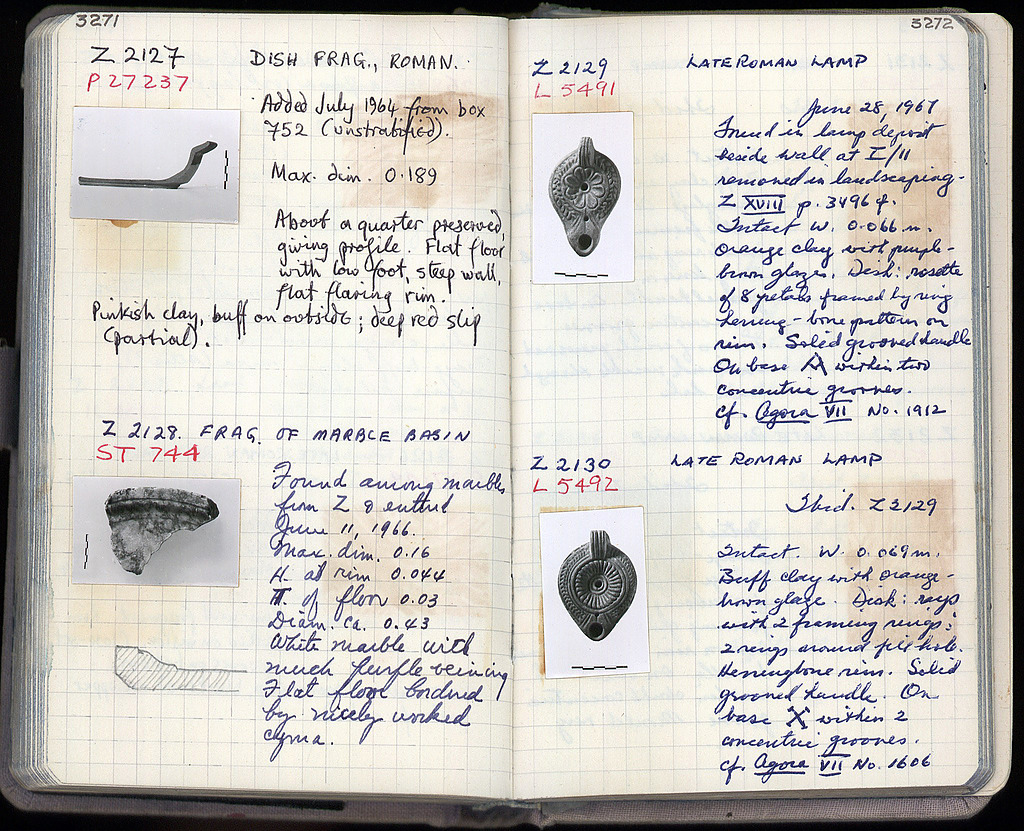 3271
Z 2127 DISH FRAG., ROMAN.
P 27237
Added July 1964 from box
752 (unstratified).
Max. dim. 0.189
About a quarter preserved,
giving profile. Flat floor
with low foot, steep wall,
flat flaring rim.
Pinkish clay, buff on outside; deep red slip
(partial).
Z 2128. FRAG. OF MARBLE BASIN
ST 744
Found among marbles
from Z &
June 11, 1966.
Max. dim. 0.16
H. at rim 0.044
T. of floor 0.03
Diam. ca. 0.43
White marble with
much purple veining
Flat floor bordered
by nicely worked
cyma.
3272
Z 2129 LATE ROMAN LAMP
L 5491
June 28, 1967
Found in lamp deposit
beside wall at I/11
removed in landscaping-
Z XVIII p. 3496 f.
Intact W. 0.066 m.
Orange clay with purple-
brown glaze. Disk: rosette
of 8 petals framed by ring
Herring-bone pattern on
rim. Solid grooved handle
On base A within two
concentric grooves.
cf. Agora VII No. 1912
Z 2130 LATE ROMAN LAMP
L 5492
Ibid. Z 2129
Intact. W. 0.069 m.
Buff clay with orange-
brown glaze. Disk: rays
with 2 framing rings;
2 rings around fill hole.
Herringbone rim. Solid
grooved handle. On
base X within 2
concentric grooves.
cf. Agora VII No. 1606